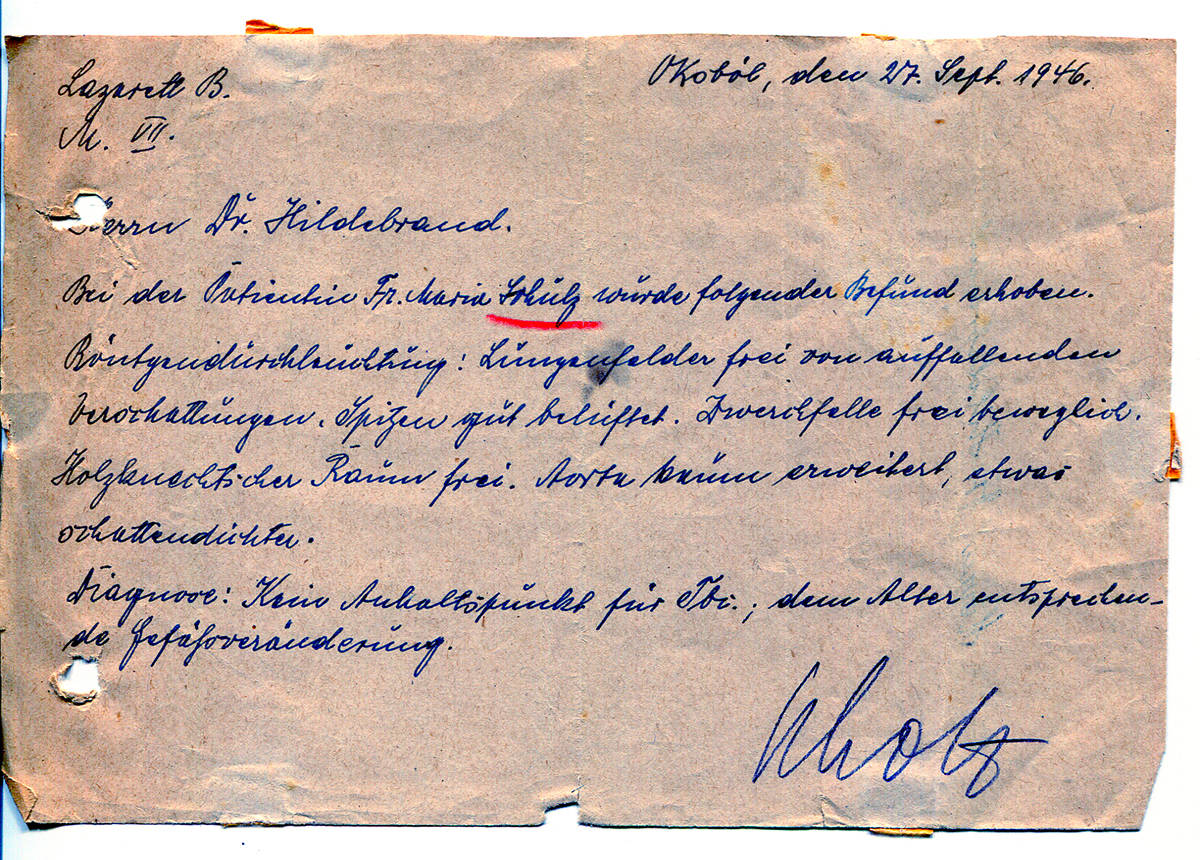 Lazarett B.
Oksböl, den 27. Sept. 1946.
M. VII.
Herrn Dr. Hildebrand.
Bei der Patientin Fr. Maria Schulz wurde folgender Befund erhoben.
Röntgendurchleuchtung: Lungenfelder frei von auffallenden
Verschattungen. Spitzen gut belüftet. Zwerchfelle frei beweglich.
Holzknechtscher Raum frei. Aorta kaum erweitert, etwas
schattendichter.
Diagnose: Kein Anhaltspunkt für Tbc.; dem Alter entsprechen-
de Gefäßveränderung.